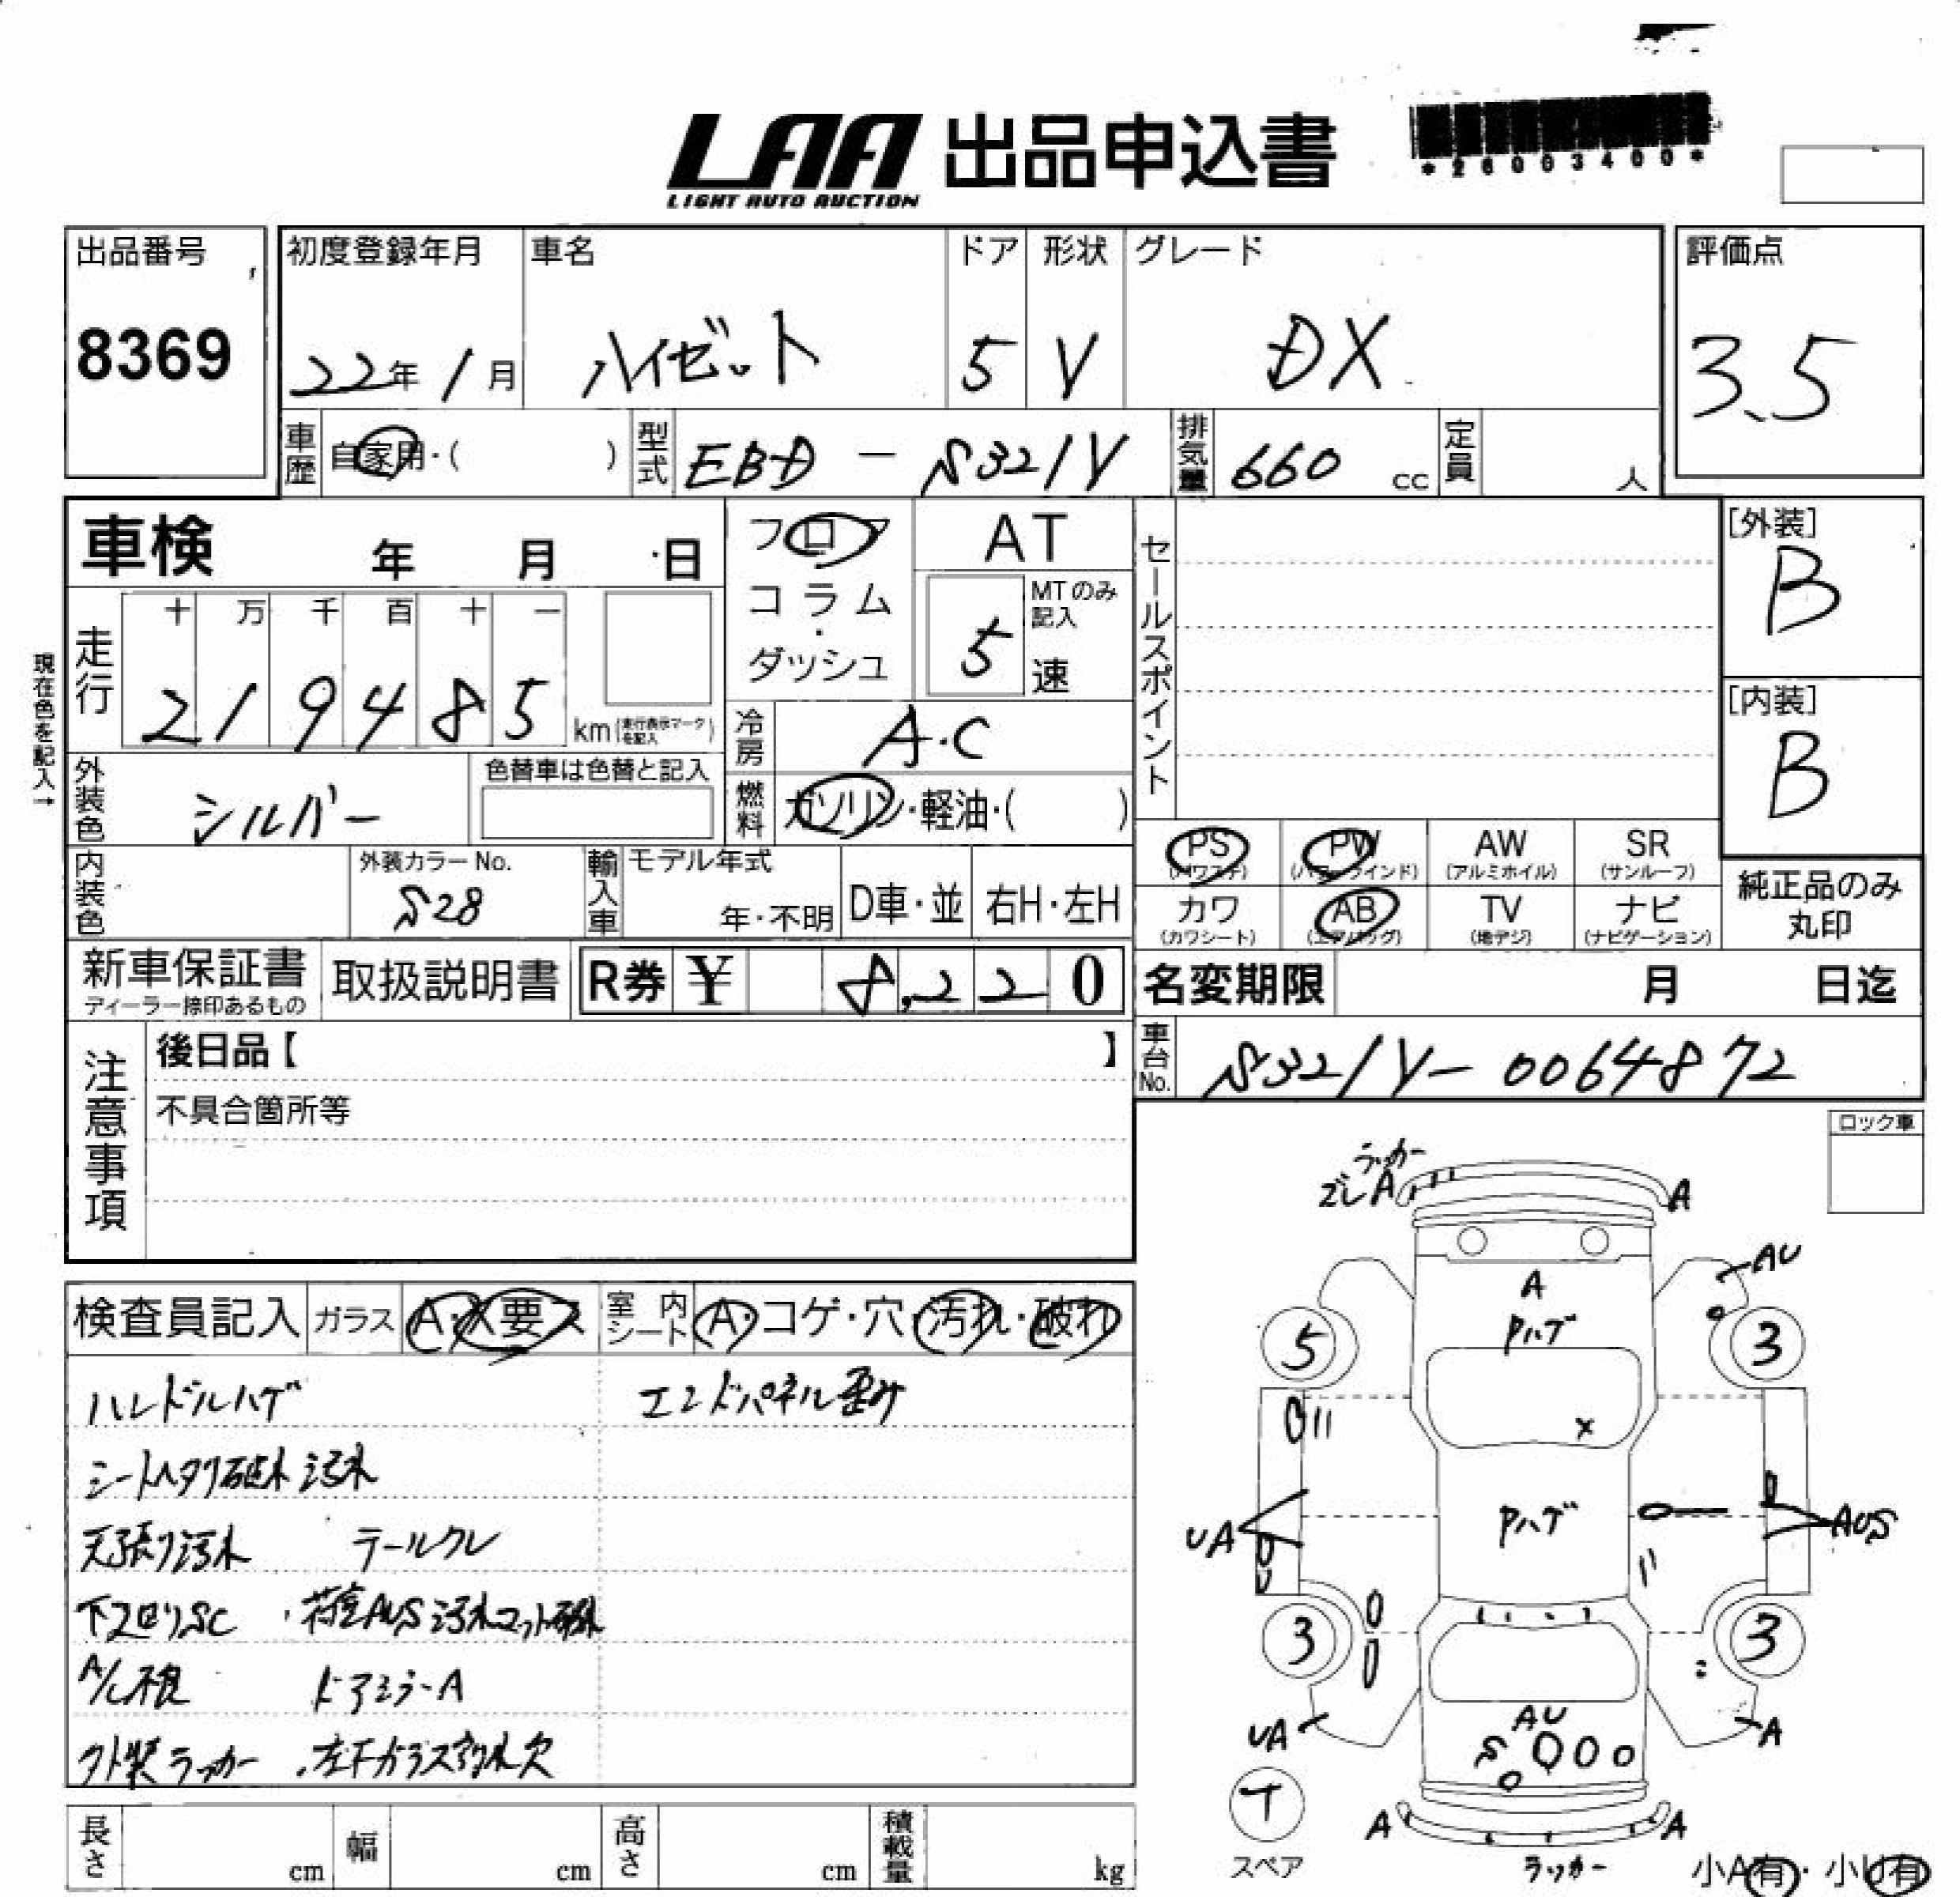 LAA 出品申込書
LIGHT AUTO AUCTION
*26003400*
出品番号
8369
初度登録年月
22年 1月
車名
ハイゼット
ドア
5
形状
V
グレード
DX
評価点
3.5
車歴
自家用・( )
型式
EBD - S321V
排気量
660 cc
定員
人
車検 年 月 日
フロア
コラム・ダッシュ
AT
MTのみ記入
5 速
セールスポイント
[外装]
B
[内装]
B
現在色を記入→
走行
十 万 千 百 十 一
2 1 9 4 8 5 km (走行表示マークを記入)
冷房
A・C
燃料
ガソリン・軽油・( )
外装色
シルバー
色替車は色替と記入
内装色
外装カラーNo.
S28
輸入車
モデル年式
年・不明
D車・並
右H・左H
PS (パワステ)
PW (パワーウインド)
AW (アルミホイル)
SR (サンルーフ)
カワ (カワシート)
AB (エアバッグ)
TV (地デジ)
ナビ (ナビゲーション)
純正品のみ丸印
新車保証書
ディーラー捺印あるもの
取扱説明書
R券 ¥ 8,220
名変期限 月 日迄
車台No.
S321V-0064872
注意事項
後日品【 】
不具合箇所等
ロック車
検査員記入
ガラス A・X要ス
室内シート A・コゲ・穴・汚れ・破れ
ハンドルハゲ
エンドパネル歪み
シートヘタリ破れ 汚れ
天張り汚れ テールクレ
下フロリSC ・荷室AUS汚れマット破れ
A/C不良 ドアミラーA
外装ラッカー ・左下ガラス割れ欠
ラッカー
ズレA
A
AU
A
Pハゲ
5
3
X
UA
Pハゲ
AUS
3
3
UA
AU
A
S
T
スペア
A
A
ラッカー
小A有・小U有
長さ cm
幅 cm
高さ cm
積載量 kg